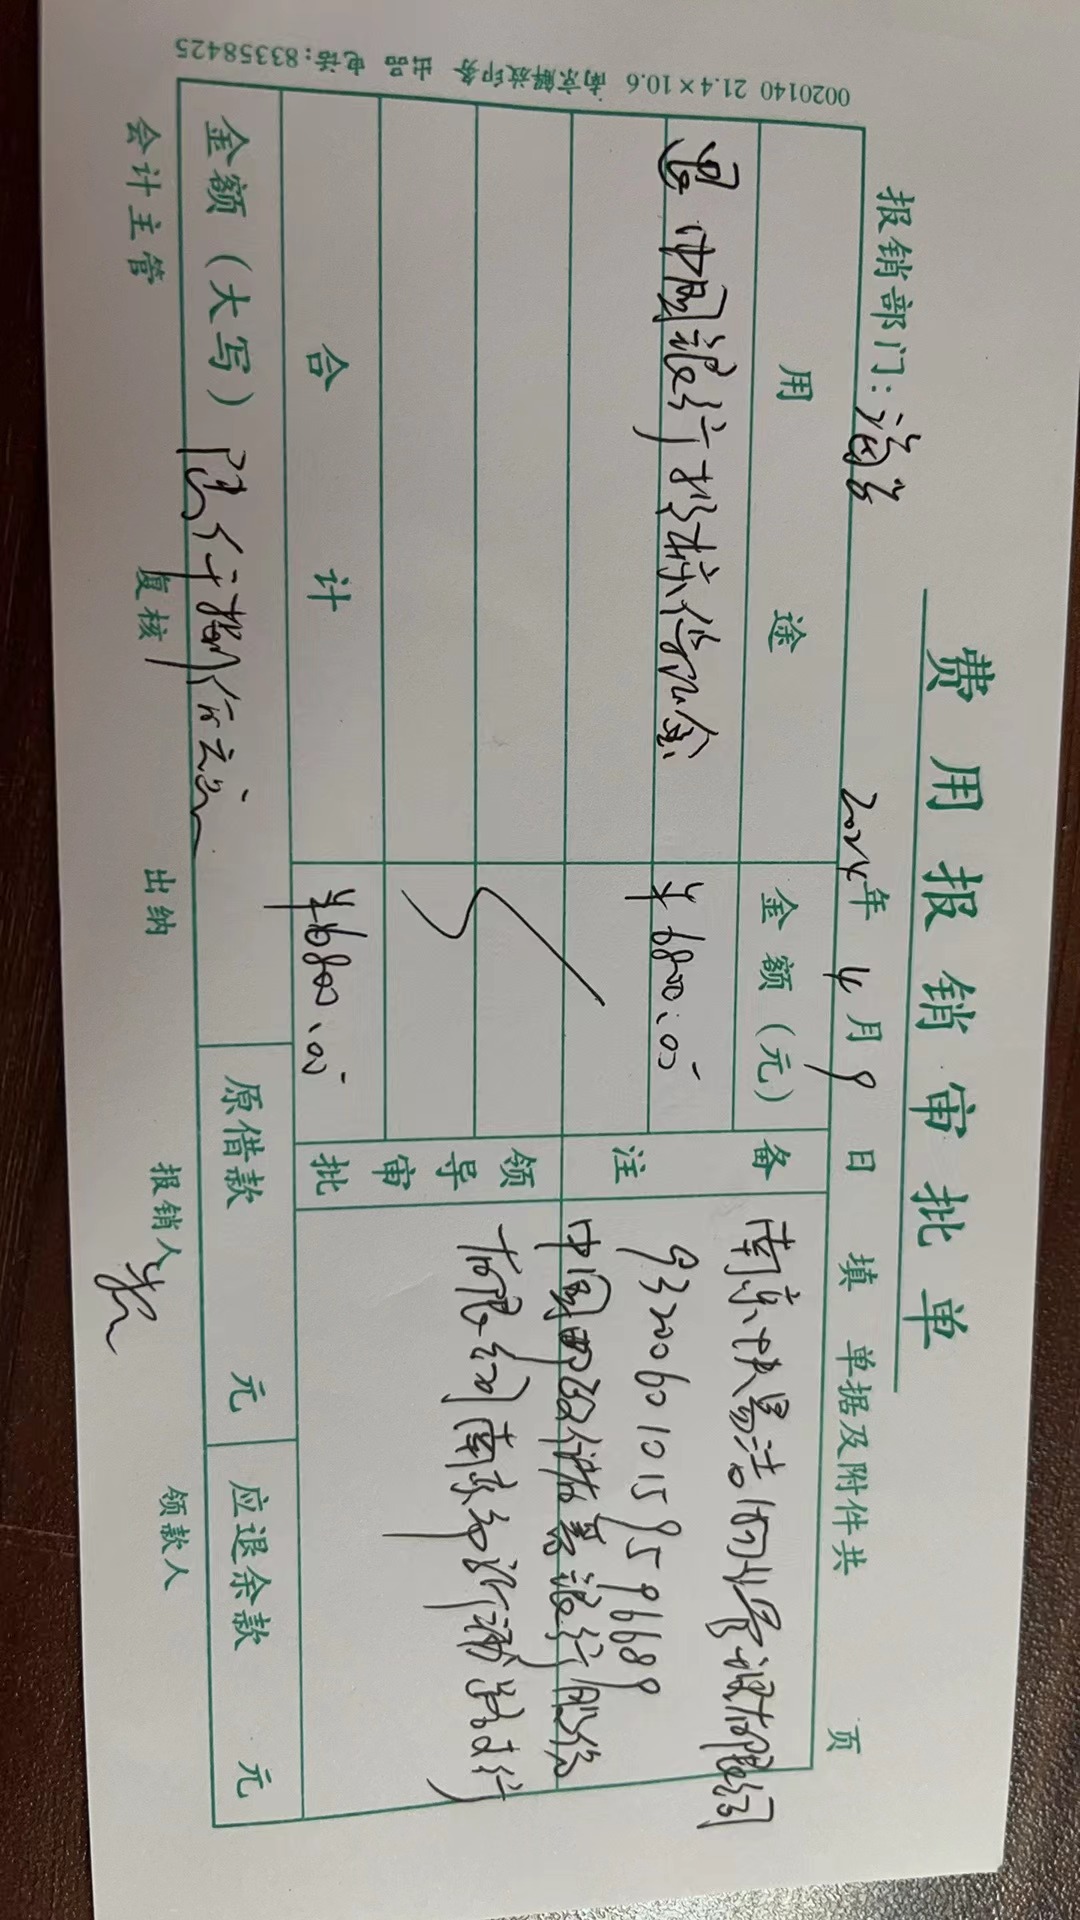 费用报销审批单
报销部门: 2024年4月9日填 单据及附件共 页
用途 金额(元) 备注
退中国银行投标保证金 ¥6800.00
南京快易洁
932006010159596689
中国邮政储蓄银行股份
有限公司南京 支行
领导审批
合计 ¥6800.00
金额(大写) 陆仟捌佰元 原借款 元 应退余款 元
会计主管 复核 出纳 报销人 领款人
0020140 21.4×10.6 南京解放印务 出品 电话:83358425